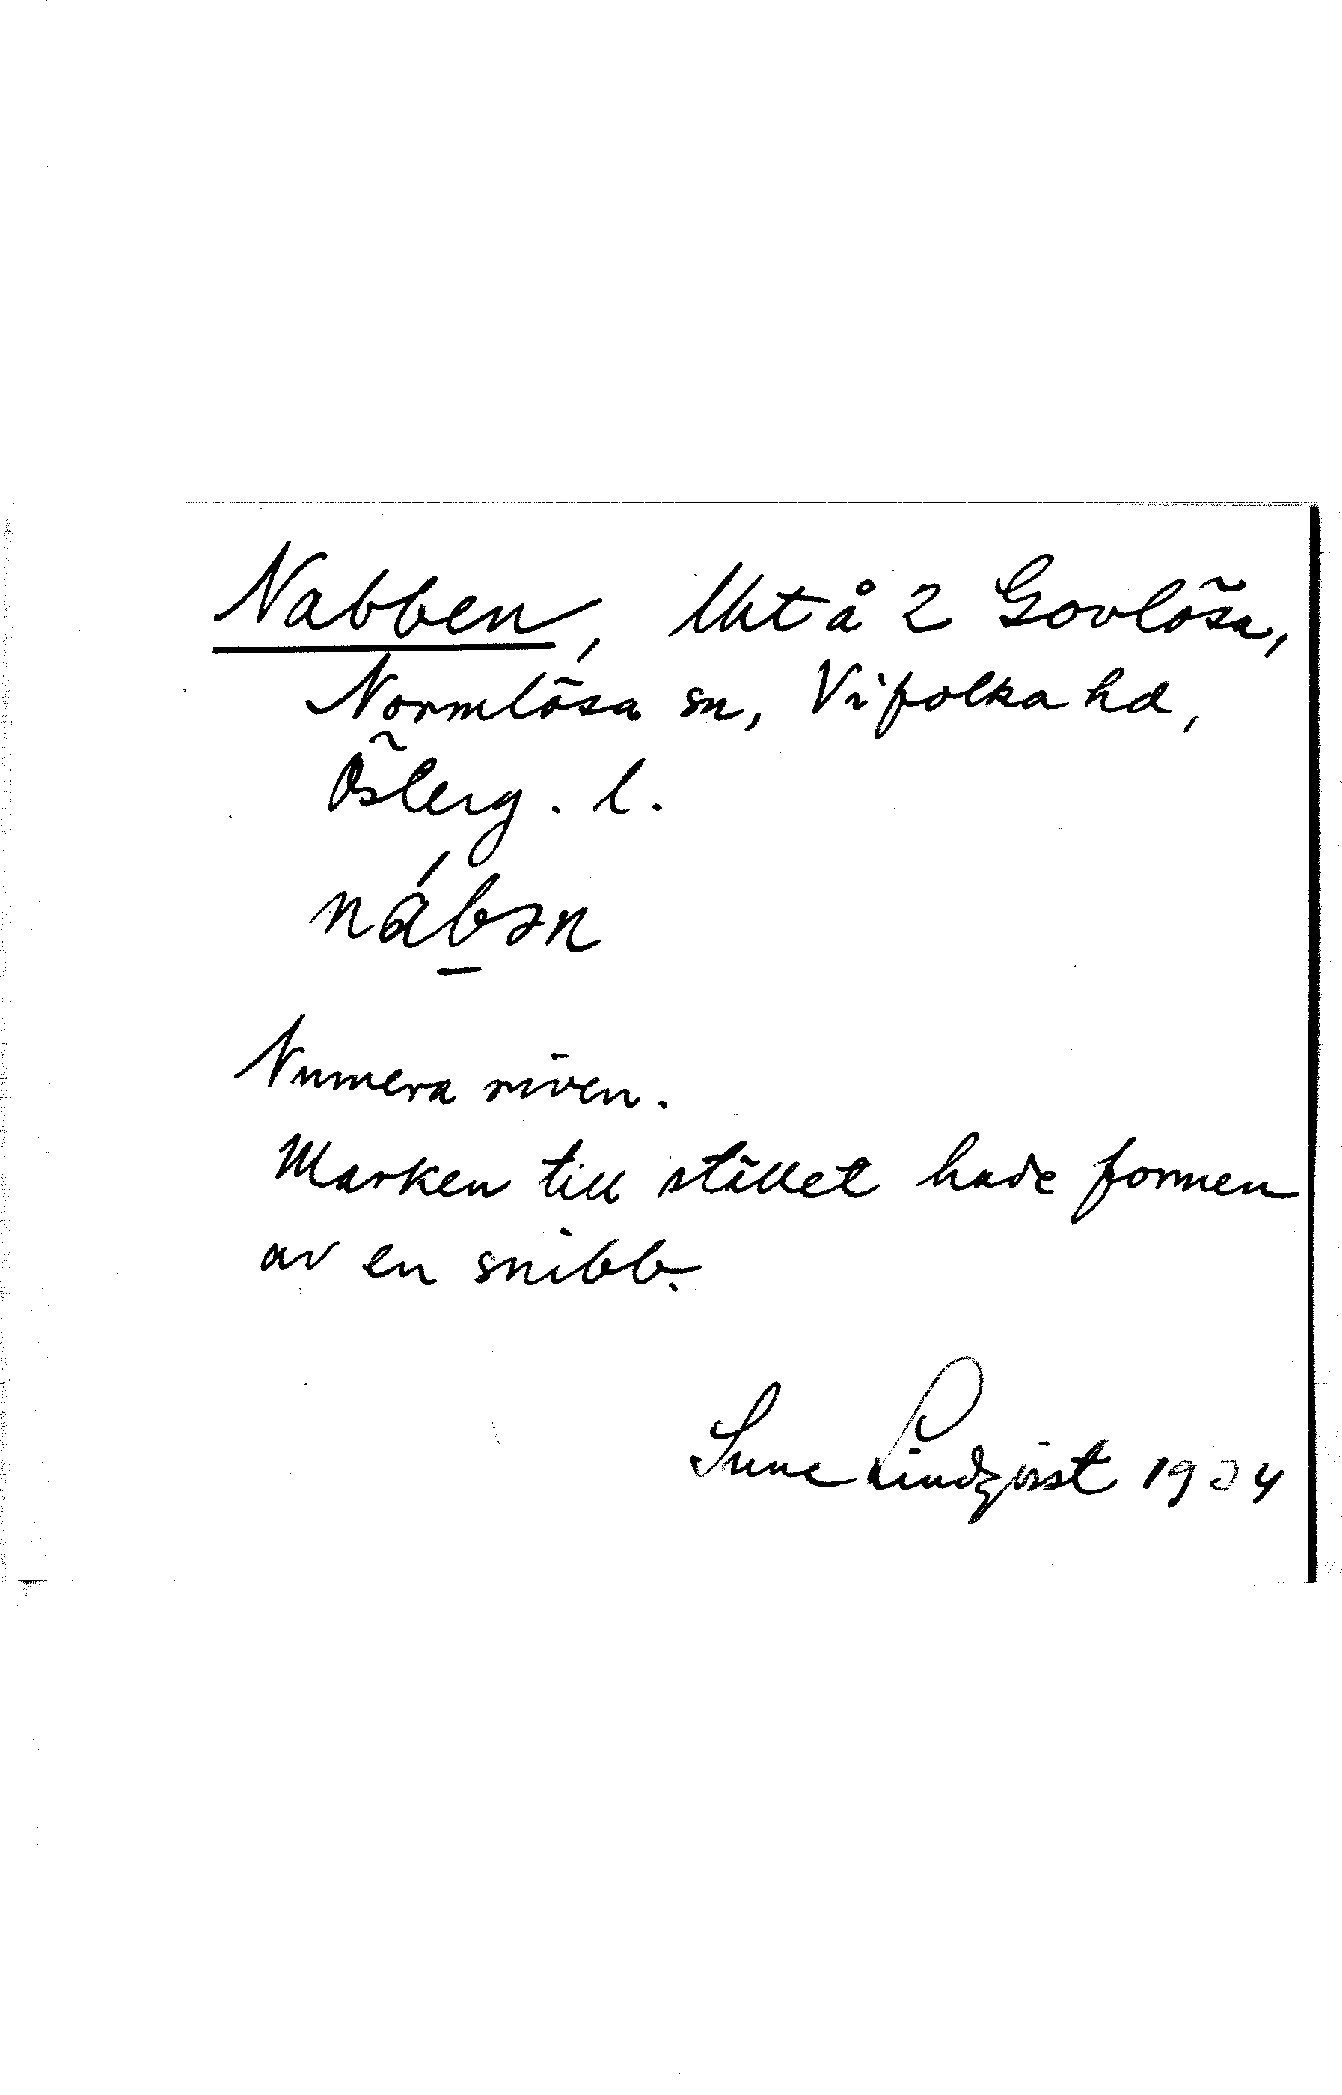 Nabben, lht å 2 Govlösa,
Normlösa sn, Vifolka hd,
Österg. l.
nábən
Numera riven.
Marken till stället hade formen
av en snibb.
Sune Lindqvist 1934